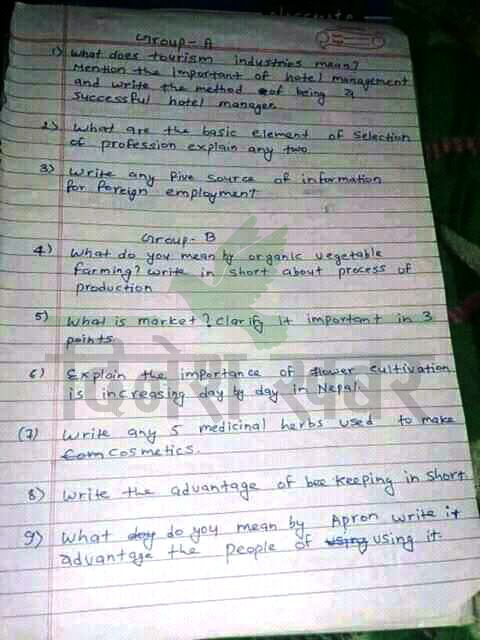 Group-A
1) What does tourism industries mean?
Mention the important of hotel management
and write the method of being a
successful hotel manager
2) What are the basic element of selection
of profession explain any two
3) Write any five source of information
for foreign employment?
Group-B
4) What do you mean by organic vegetable
farming? Write in short about process of
production
5) What is market? Clarify it important in 3
points
6) Explain the importance of flower cultivation
is increasing day by day in Nepal.
(7) Write any 5 medicinal herbs used to make
com cosmetics.
8) Write the advantage of bee keeping in short
9) What day do you mean by Apron write it
advantage the people of using using it
दिनेश खबर